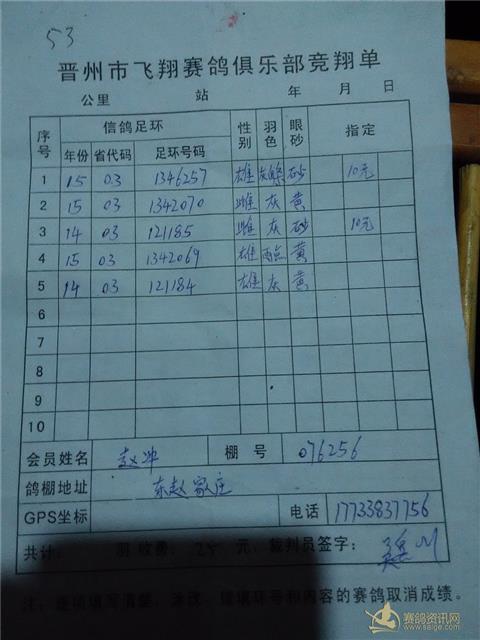 53
晋州市飞翔赛鸽俱乐部竞翔单
公里 站 年 月 日
序号 信鸽足环 性别 羽色 眼砂 指定
年份 省代码 足环号码
1 15 03 1346257 雄 灰 砂 10元
2 15 03 1342070 雌 灰 黄
3 14 03 121185 雌 灰 砂 10元
4 15 03 1342069 雄 雨点 黄
5 14 03 121184 雄 灰 黄
6
7
8
9
10
会员姓名 赵冲 棚号 076256
鸽棚地址 东赵家庄
GPS坐标 电话 17733837756
共计: 羽 收费: 25 元 裁判员签字:
注: 逐项填写清楚, 涂改、错填环号和内容的赛鸽取消成绩。
赛鸽资讯网
www.saige.com